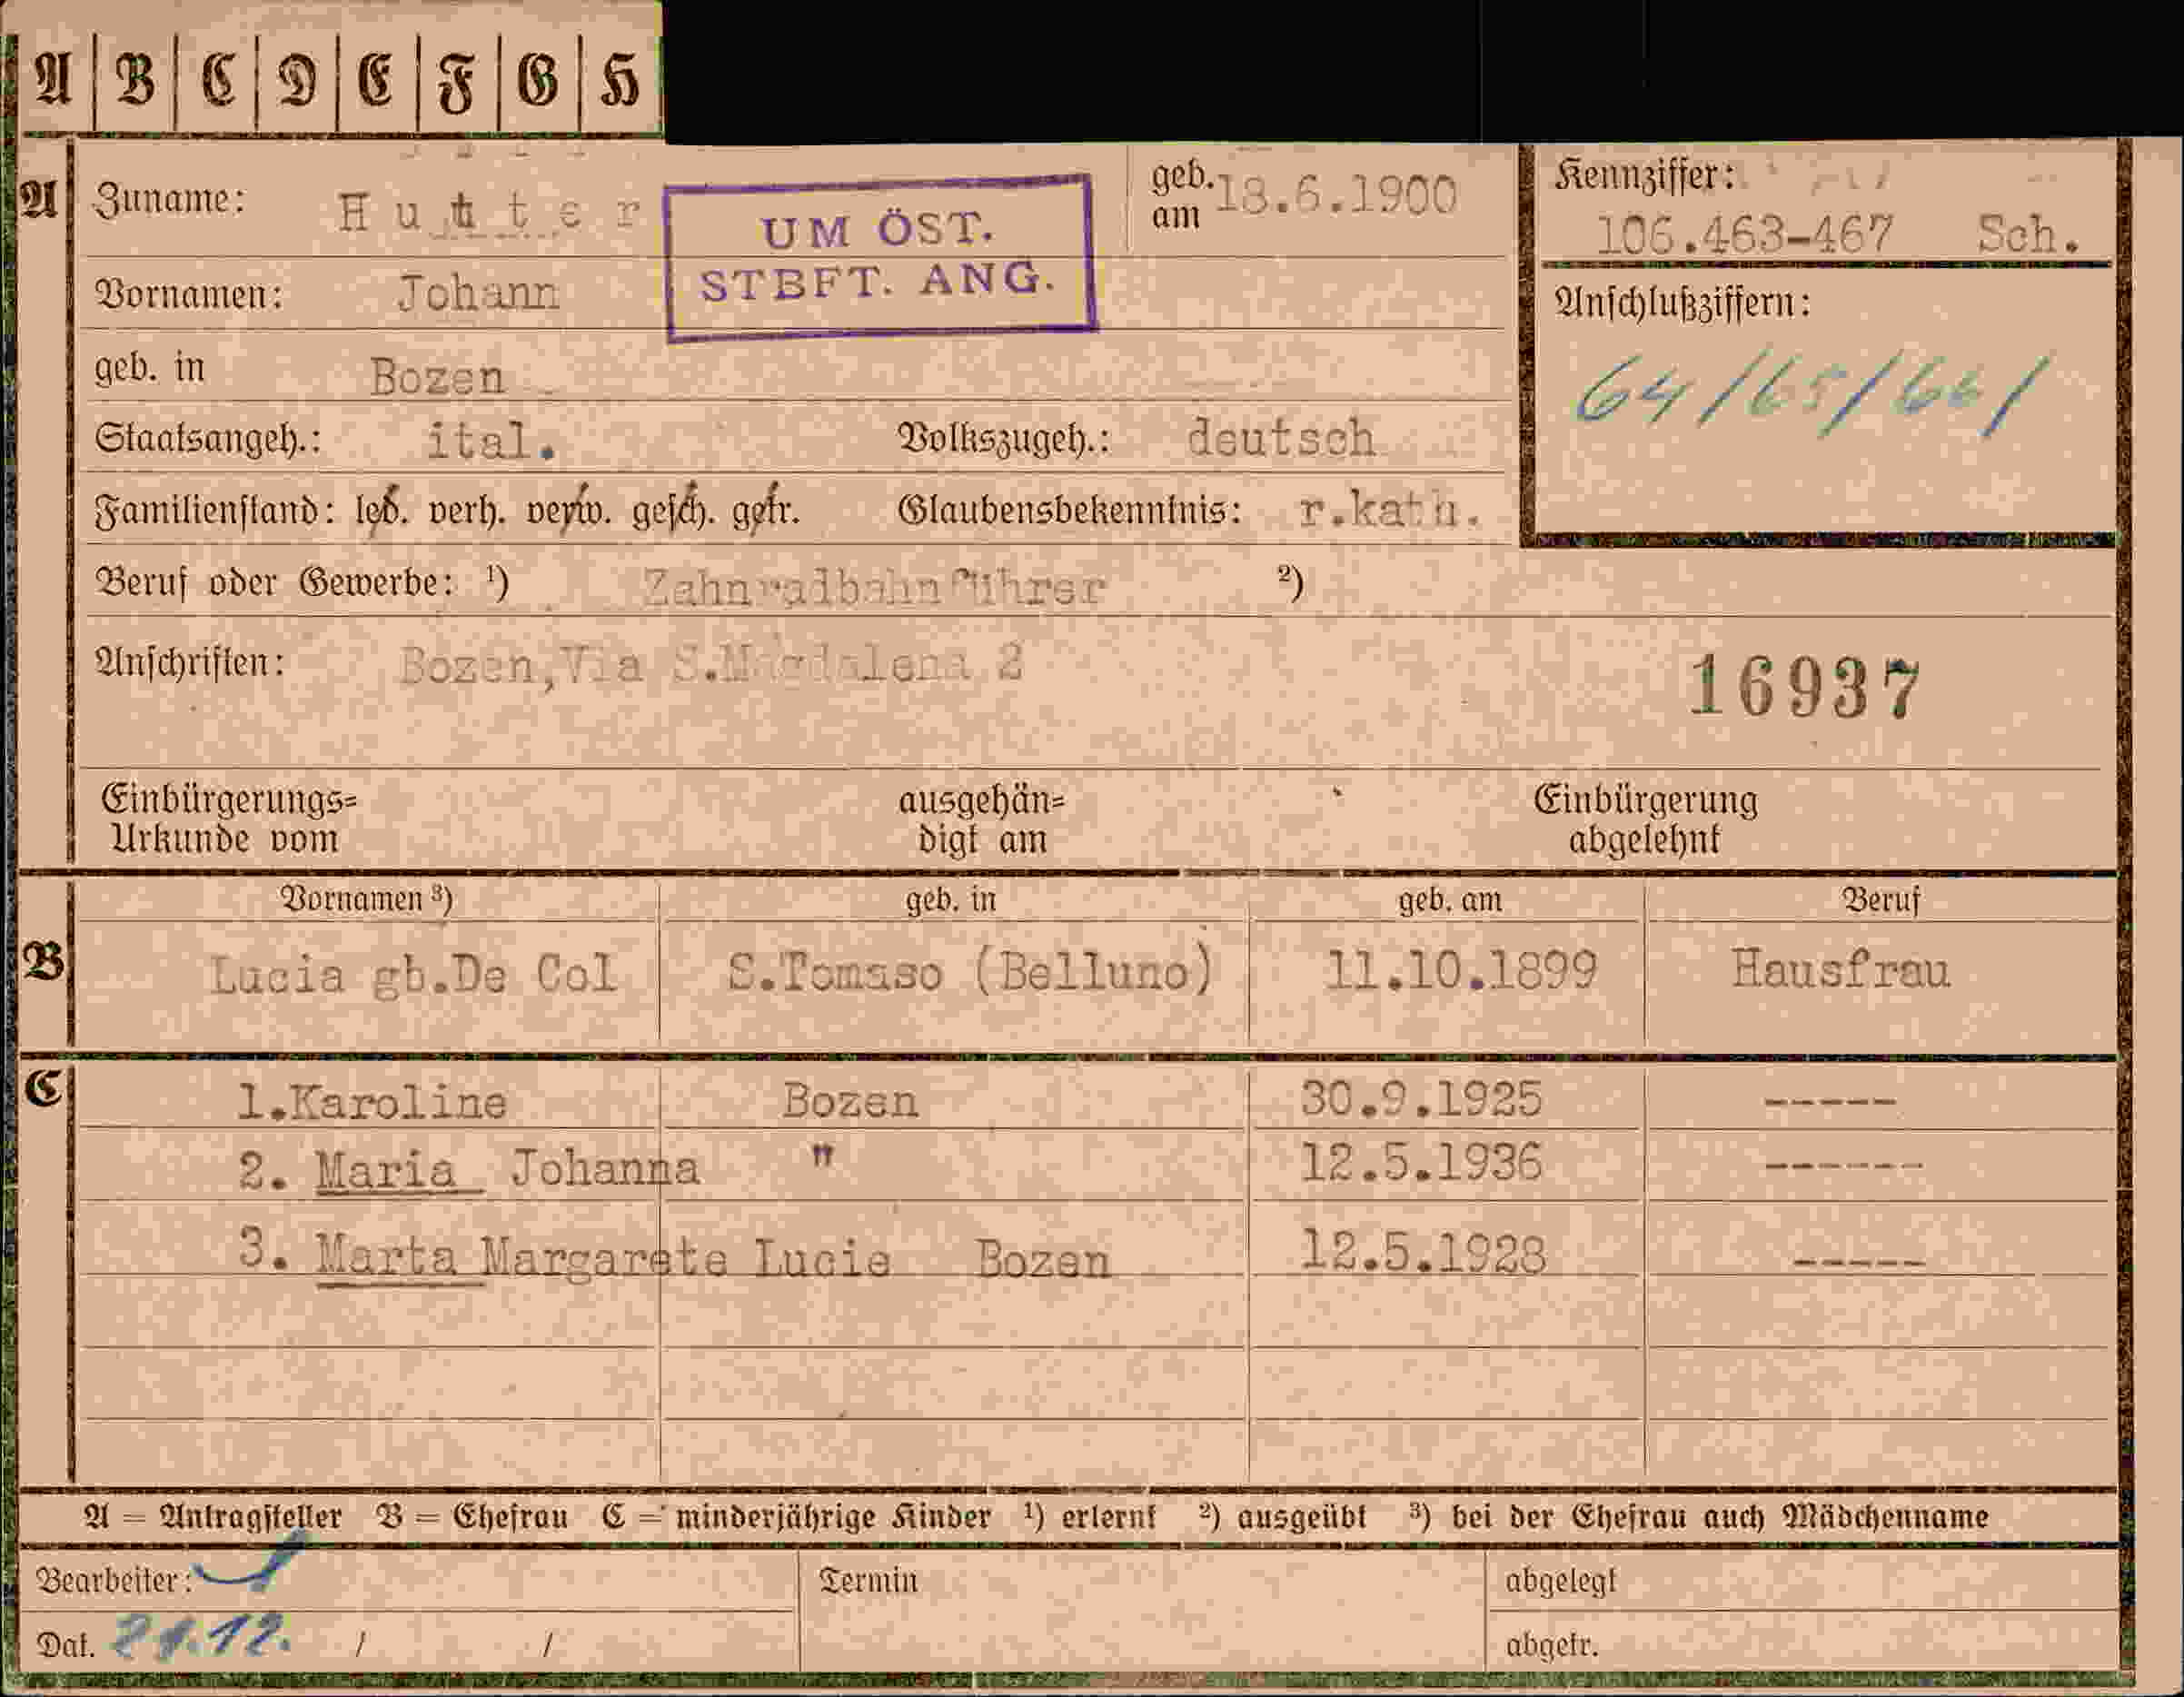 A B C D E F G H
A Zuname: Hutter geb. am 18.6.1900
UM ÖST.
STBFT. ANG.
Kennziffer:
106.463-467 Sch.
Vornamen: Johann
Anschlußziffern:
64/65/66/
geb. in Bozen
Staatsangeh.: ital. Volkszugeh.: deutsch
Familienstand: led. verh. verw. gesch. getr. Glaubensbekenntnis: r.kath.
Beruf oder Gewerbe: ¹) Zahnradbahnführer ²)
Anschriften: Bozen,Via S.Magdalena 2
16937
Einbürgerungs= ausgehän= Einbürgerung
Urkunde vom digt am abgelehnt
Vornamen ³) geb. in geb. am Beruf
B Lucia gb.De Col S.Tomaso (Belluno) 11.10.1899 Hausfrau
C 1.Karoline Bozen 30.9.1925 -----
2. Maria Johanna " 12.5.1936 ------
3. Marta Margarete Lucie Bozen 12.5.1928 -----
A = Antragsteller B = Ehefrau C = minderjährige Kinder ¹) erlernt ²) ausgeübt ³) bei der Ehefrau auch Mädchenname
Bearbeiter: Termin abgelegt
Dat. 12. / / abgetr.